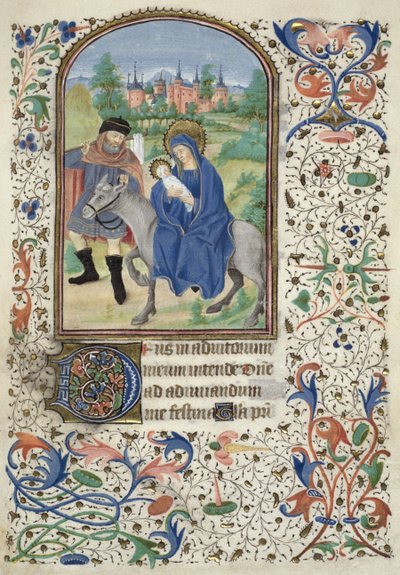 Deus in adiutorium
meum intende Dne
ad adiuvandum
me festina Gla pri